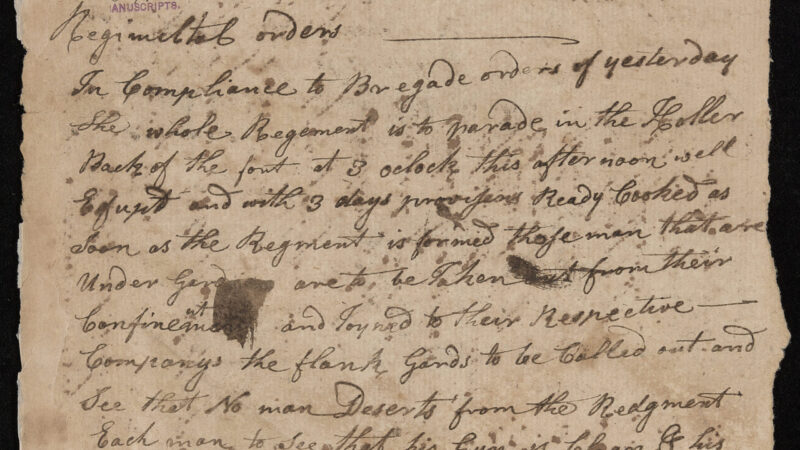 ANUSCRIPTS.
Regimeltal orders
In Compliance to Bregade orders of yesterday
The whole Regement is to parade in the Holler
Back of the fort at 3 oclock this afternoon well
Equpt and with 3 days provisens Ready Cooked as
Soon as the Regment is formed those man that are
Under Gard are to be Taken out from their
Confinement and Joyned to their Respective
Companys the flank Gards to be Called out and
See that No man Deserts from the Redgment
Each man to See that his Gun is Clean & his